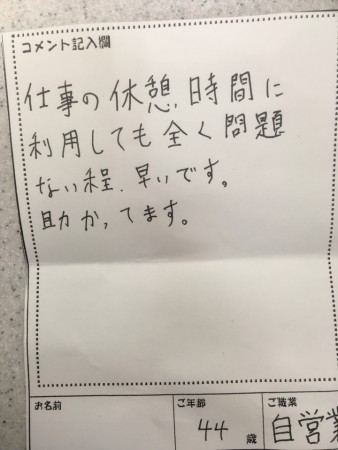 コメント記入欄
仕事の休憩時間に
利用しても全く問題
ない程、早いです。
助かってます。
お名前
ご年齢
ご職業
44歳
自営業